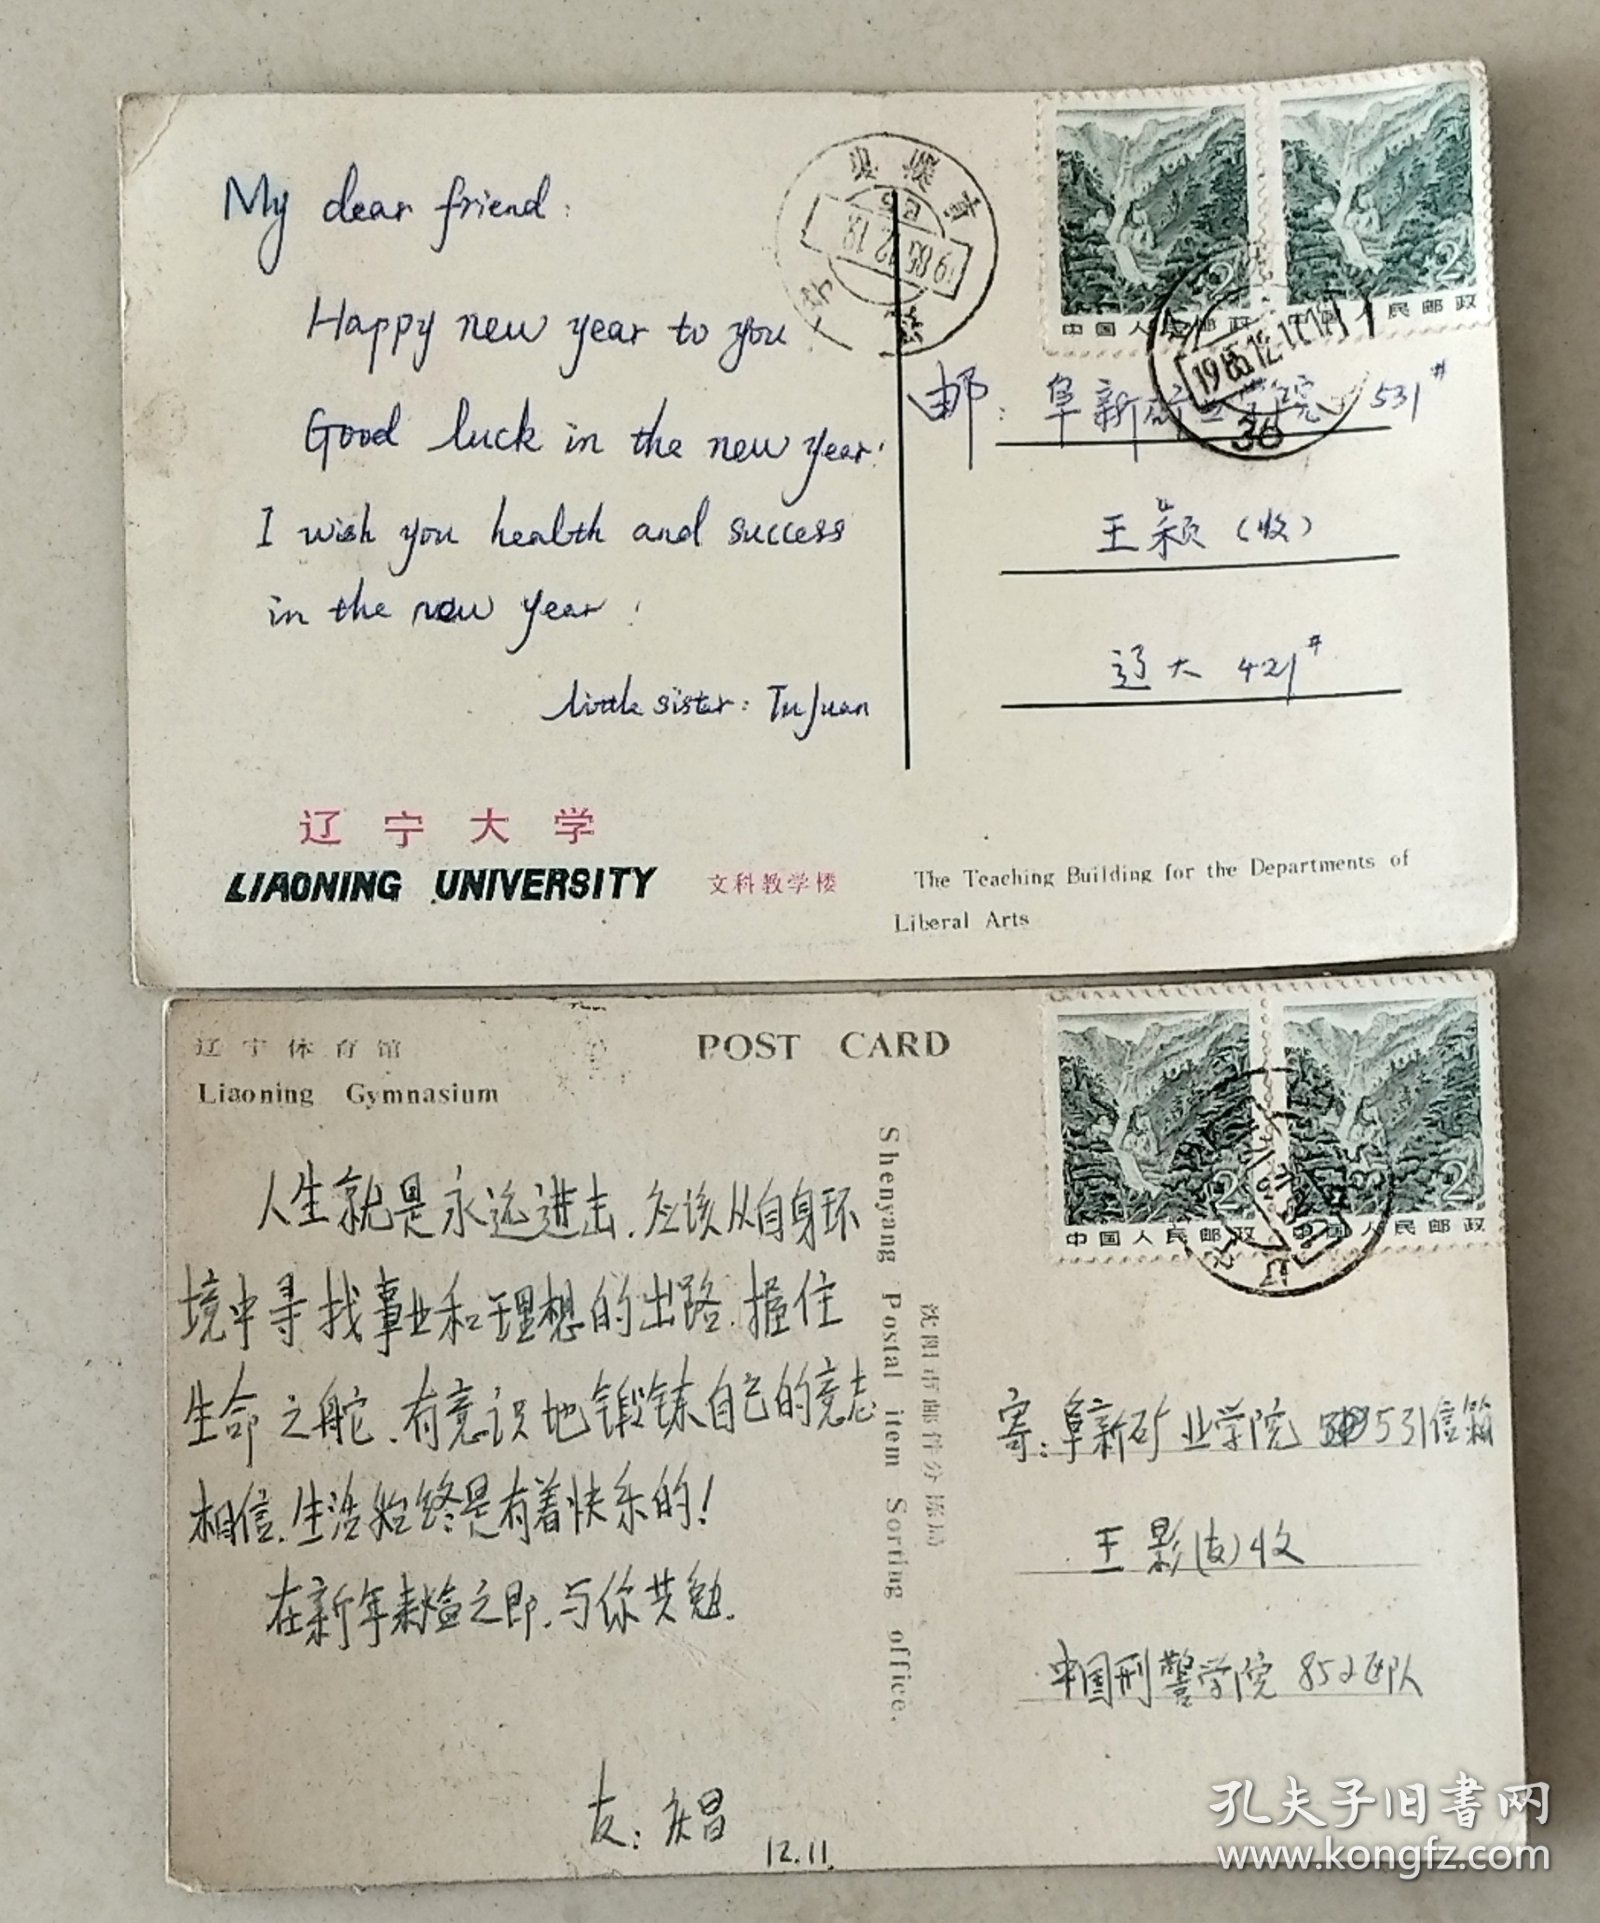 My dear friend:
Happy new year to you
Good luck in the new year!
I wish you health and success
in the new year!
little sister: TuJuan
辽宁大学
LIAONING UNIVERSITY
文科教学楼
The Teaching Building for the Departments of
Liberal Arts
2
中国人民邮政
2
中国人民邮政
1985.12.
36
邮:阜新矿业学院 531#
王颖(收)
辽大 421#
辽宁体育馆
Liaoning Gymnasium
POST CARD
人生就是永远进击.应该从自身环
境中寻找事业和理想的出路.握住
生命之舵.有意识地锻铼自己的意志
相信.生活始终是有着快乐的!
在新年来临之即.与你共勉.
友:庆昌
12.11.
Shenyang Postal item Sorting office.
沈阳市邮件分拣局
2
中国人民邮政
2
中国人民邮政
寄:阜新矿业学院 531信箱
王影(友)收
中国刑警学院 852区队
孔夫子旧书网
www.kongfz.com